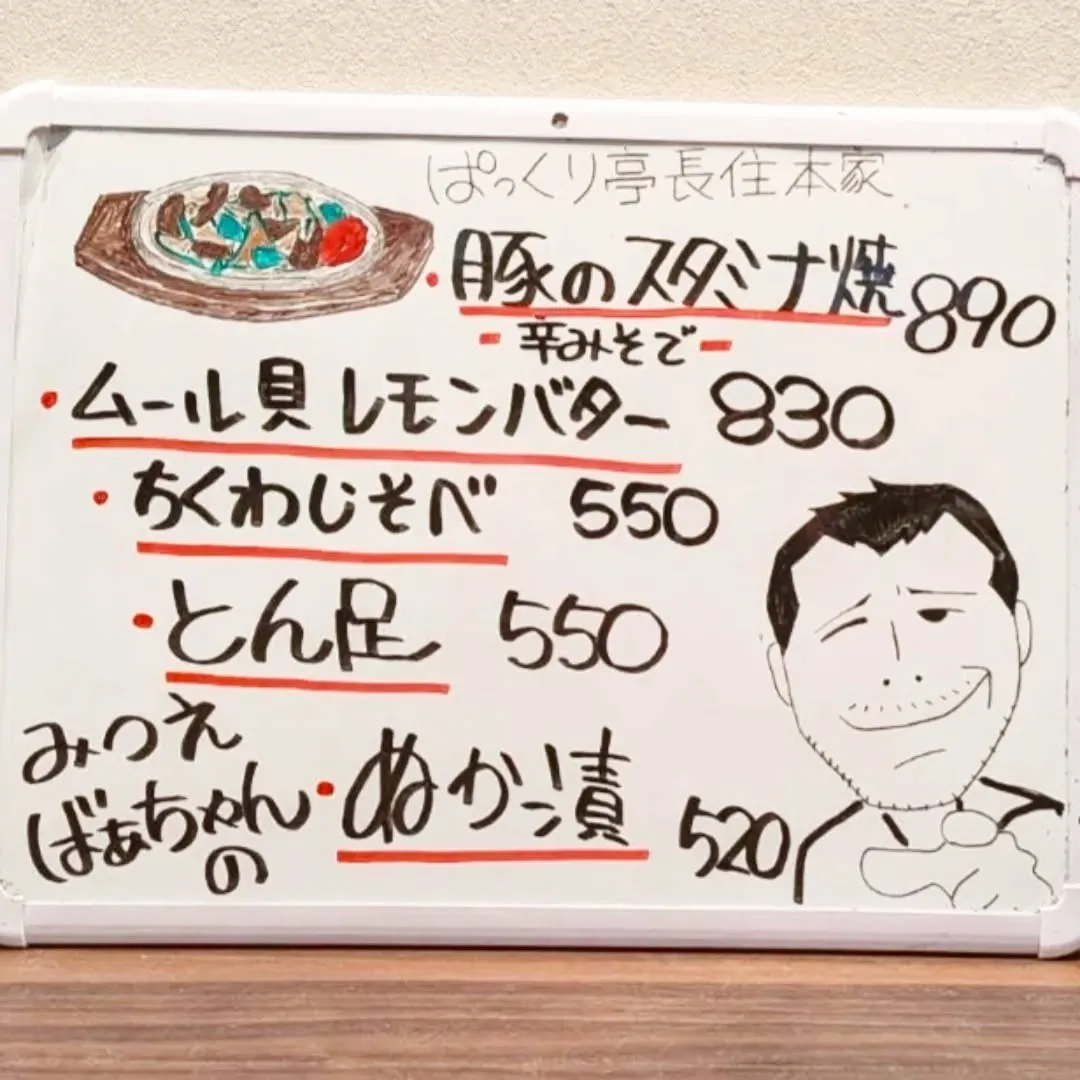 ぱっくり亭長住本家
・豚のスタミナ焼 890
-辛みそで-
・ムール貝レモンバター 830
・ちくわじそべ 550
・とん足 550
みつえ
ばぁちゃん
の
・ぬか漬 520